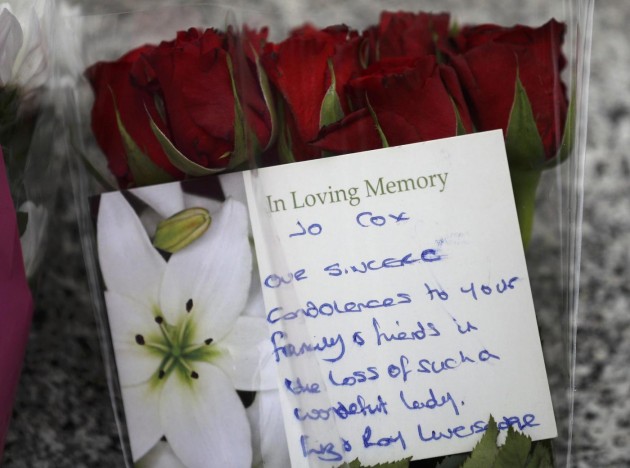 In Loving Memory
Jo Cox
our sincere
condolences to your
family & friends in
the loss of such a
wonderful lady.
& Roy